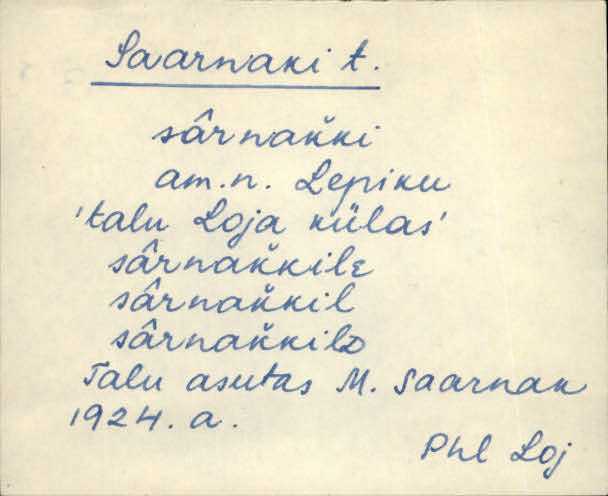 Saarnaki t.
sârnak̆ki
am. n. Lepiku
'talu Loja külas'
sârnak̆kilɛ
sârnak̆kil
sârnak̆kilD
Talu asutas M. Saarnak
1924. a.
Phl Loj